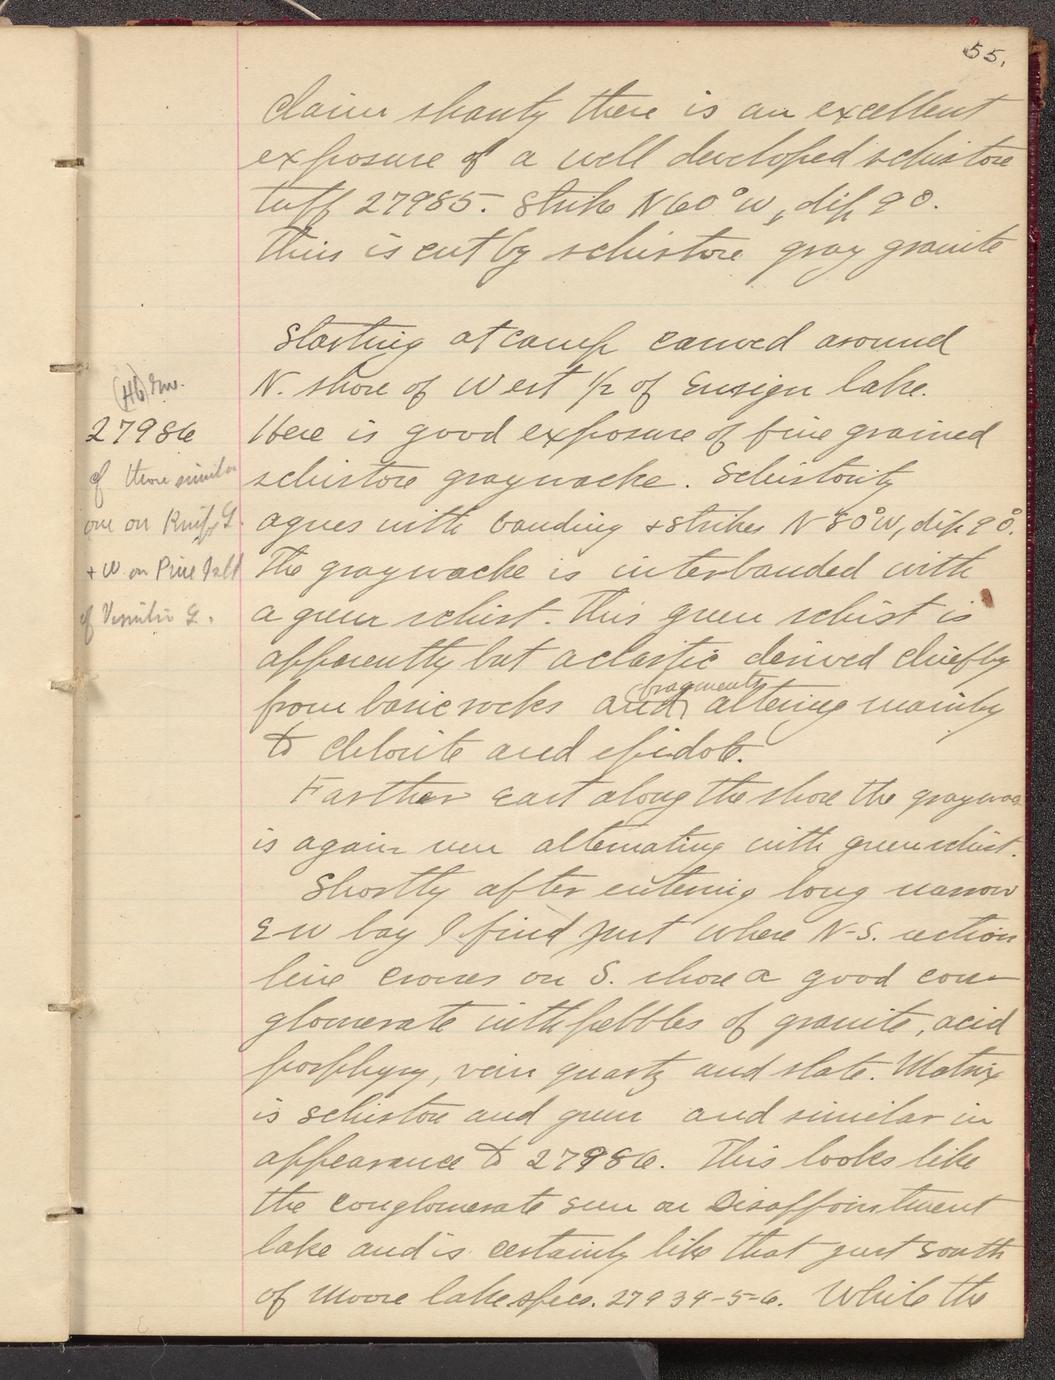 55.
claim shanty there is an excellent
exposure of a well developed schistose
tuff 27985. Strike N60°W, dip 90.
This is cut by schistose gray granite
Starting at camp canoed around
N. shore of West 1/2 of Ensign lake.
Here is good exposure of fine grained
schistose graywacke. Schistosity
agrees with banding + strikes N80°W, dip 90°.
The graywacke is interbanded with
a green schist. This green schist is
apparently but a clastic derived chiefly
from basic rocks and fragments altering mainly
to chlorite and epidote.
Farther east along the shore the graywac
is again seen alternating with green schist.
Shortly after entering long narrow
E-W bay I find just where N-S. section
line crosses on S. shore a good con-
glomerate with pebbles of granite, acid
porphyry, vein quartz and slate. Matrix
is schistose and green and similar in
appearance to 27986. This looks like
the conglomerate seen on Disappointment
lake and is certainly like that just south
of Moore lake spec. 27934-5-6. While the
27986
cf these similar
one on Knife L.
+ W. on Pine
of Vermilion L.